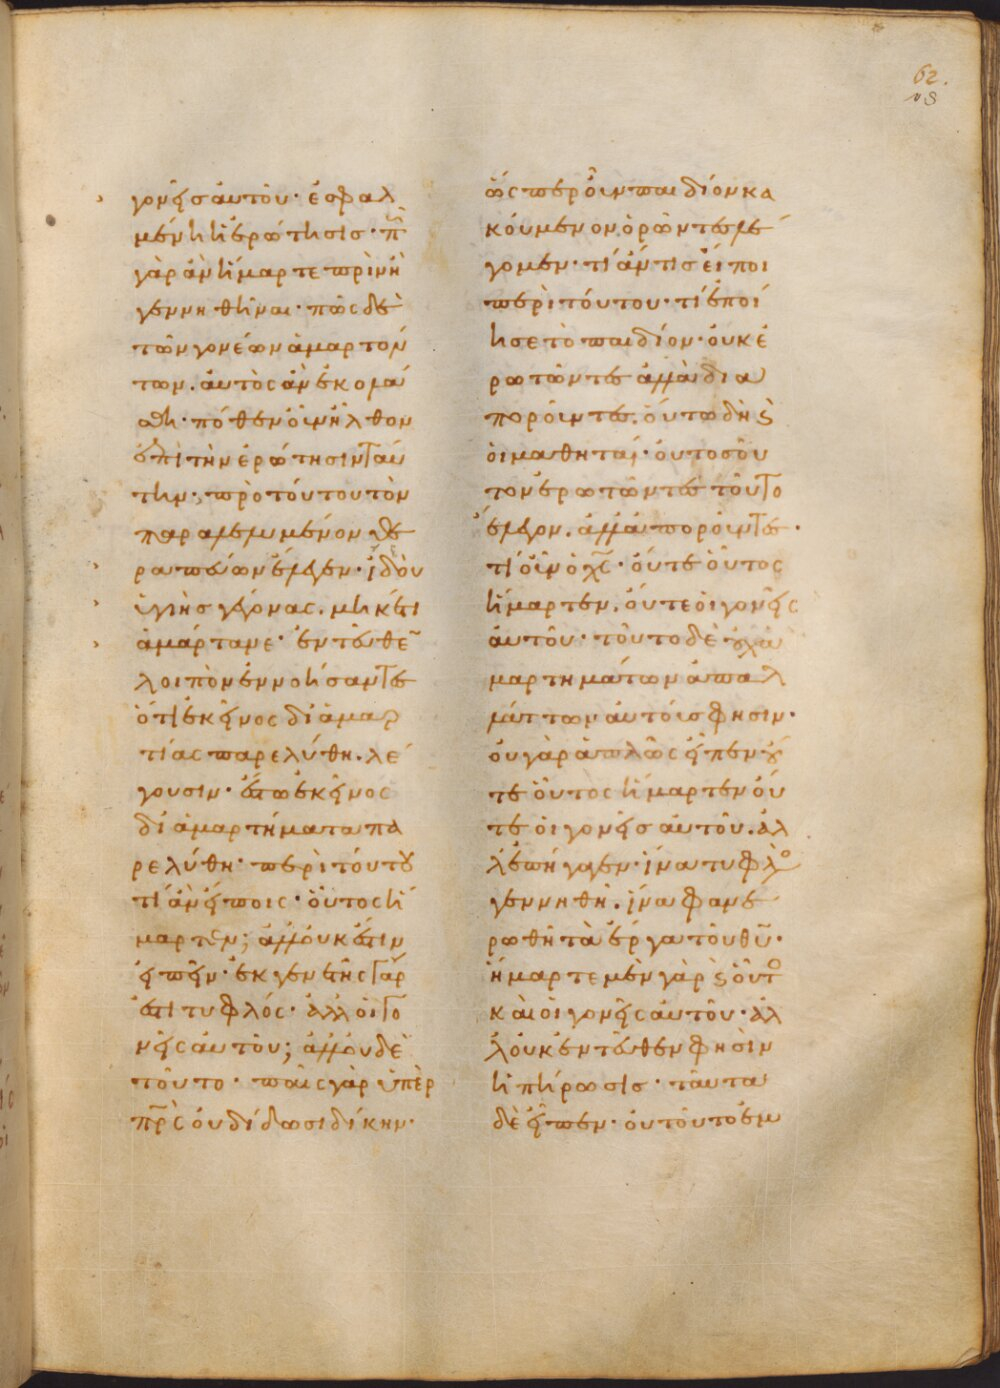 62.
γονεῖς αὐτοῦ· ἐσφαλ
μένη ἡ ἐρώτησις· πῶ
γὰρ ἂν ἥμαρτε πρὶν ἢ
γεννηθῆναι· πῶς δὲ
τῶν γονέων ἁμαρτόν
των. αὐτὸς ἂν ἐκολά
σθη· πόθεν οὖν ἦλθον
ἐπὶ τὴν ἐρώτησιν ταύ
την· πρὸ τούτου τὸν
παραλελυμένον θε
ραπεύων ἔλεγεν· ἰδοὺ
ὑγιὴς γέγονας. μηκέτι
ἁμάρτανε· ἐντεῦθε
λοιπὸν ἐννοήσαντες
ὅτι ἐκεῖνος δι ἁμαρ
τίας παρελύθη. λέ
γουσιν· ἔστω ἐκεῖνος
δι ἁμαρτήματα πα
ρελύθη· περὶ τούτου
τί ἂν εἴποις· οὗτος ἥ
μαρτεν; ἀλλ οὐκ ἔστιν
εἰπεῖν· ἐκ γενετῆς γάρ
ἐστι τυφλός· ἀλλ οἱ γο
νεῖς αὐτοῦ; ἀλλ οὐδὲ
τοῦτο· παῖς γὰρ ὑπὲρ
πρς οὐ δίδωσι δίκην·
ὥσπερ οὖν παιδίον κα
κούμενον ὁρῶντες λέ
γομεν· τί ἄν τις εἴποι
περὶ τούτου· τί ἐποί
ησε τὸ παιδίον· οὐκ ἐ
ρωτῶντες ἀλλὰ δια
ποροῦντες. οὕτω δὴ καὶ
οἱ μαθηταί· οὐ τοσοῦ
τον ἐρωτῶντες τοῦτο
ἔλεγον. ἀλλ ἀποροῦντες·
τί οὖν ὁ χς· οὔτε οὗτος
ἥμαρτεν. οὔτε οἱ γονεῖς
αὐτοῦ· τοῦτο δὲ οὐχ ἁ
μαρτημάτων ἀπαλ
λάττων αὐτούς φησιν·
οὐ γὰρ ἁπλῶς εἶπεν οὔ
τε οὗτος ἥμαρτεν οὔ
τε οἱ γονεῖς αὐτοῦ. ἀλ
λ ἐπήγαγεν· ἵνα τυφλὸ
γεννηθῆ. ἵνα φανε
ρωθῆ τὰ ἔργα τοῦ θυ·
ἥμαρτε μὲν γὰρ καὶ οὗτο
καὶ οἱ γονεῖς αὐτοῦ· ἀλ
λ οὐκ ἐντεῦθεν φησὶν
ἡ πήρωσις· ταῦτα
δὲ εἶπεν· οὐ τοῦτο ἐμ